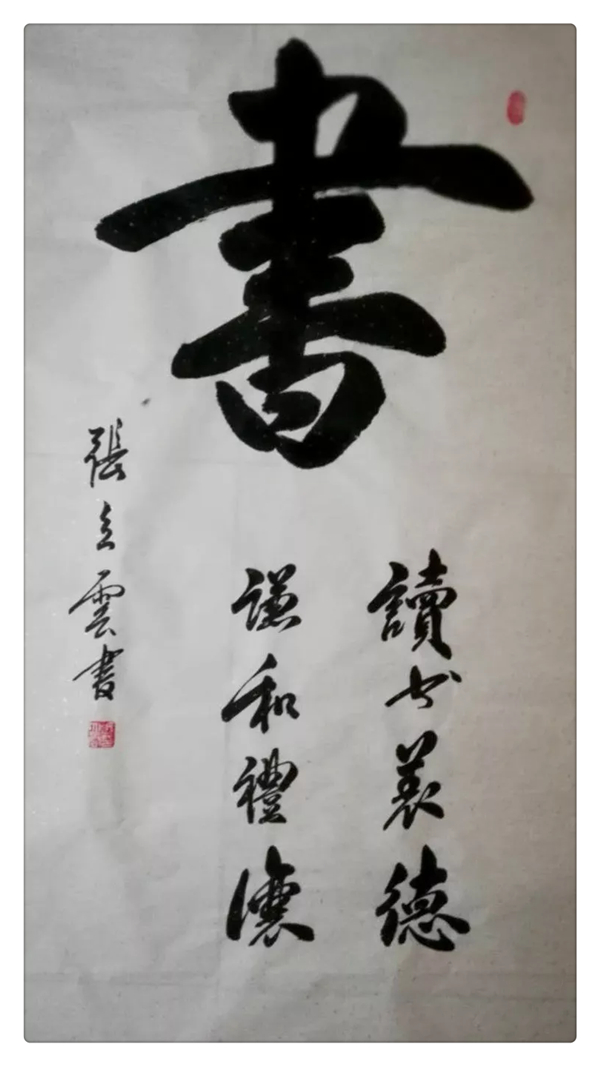 書
讀書養德
謙和禮讓
張立雲書